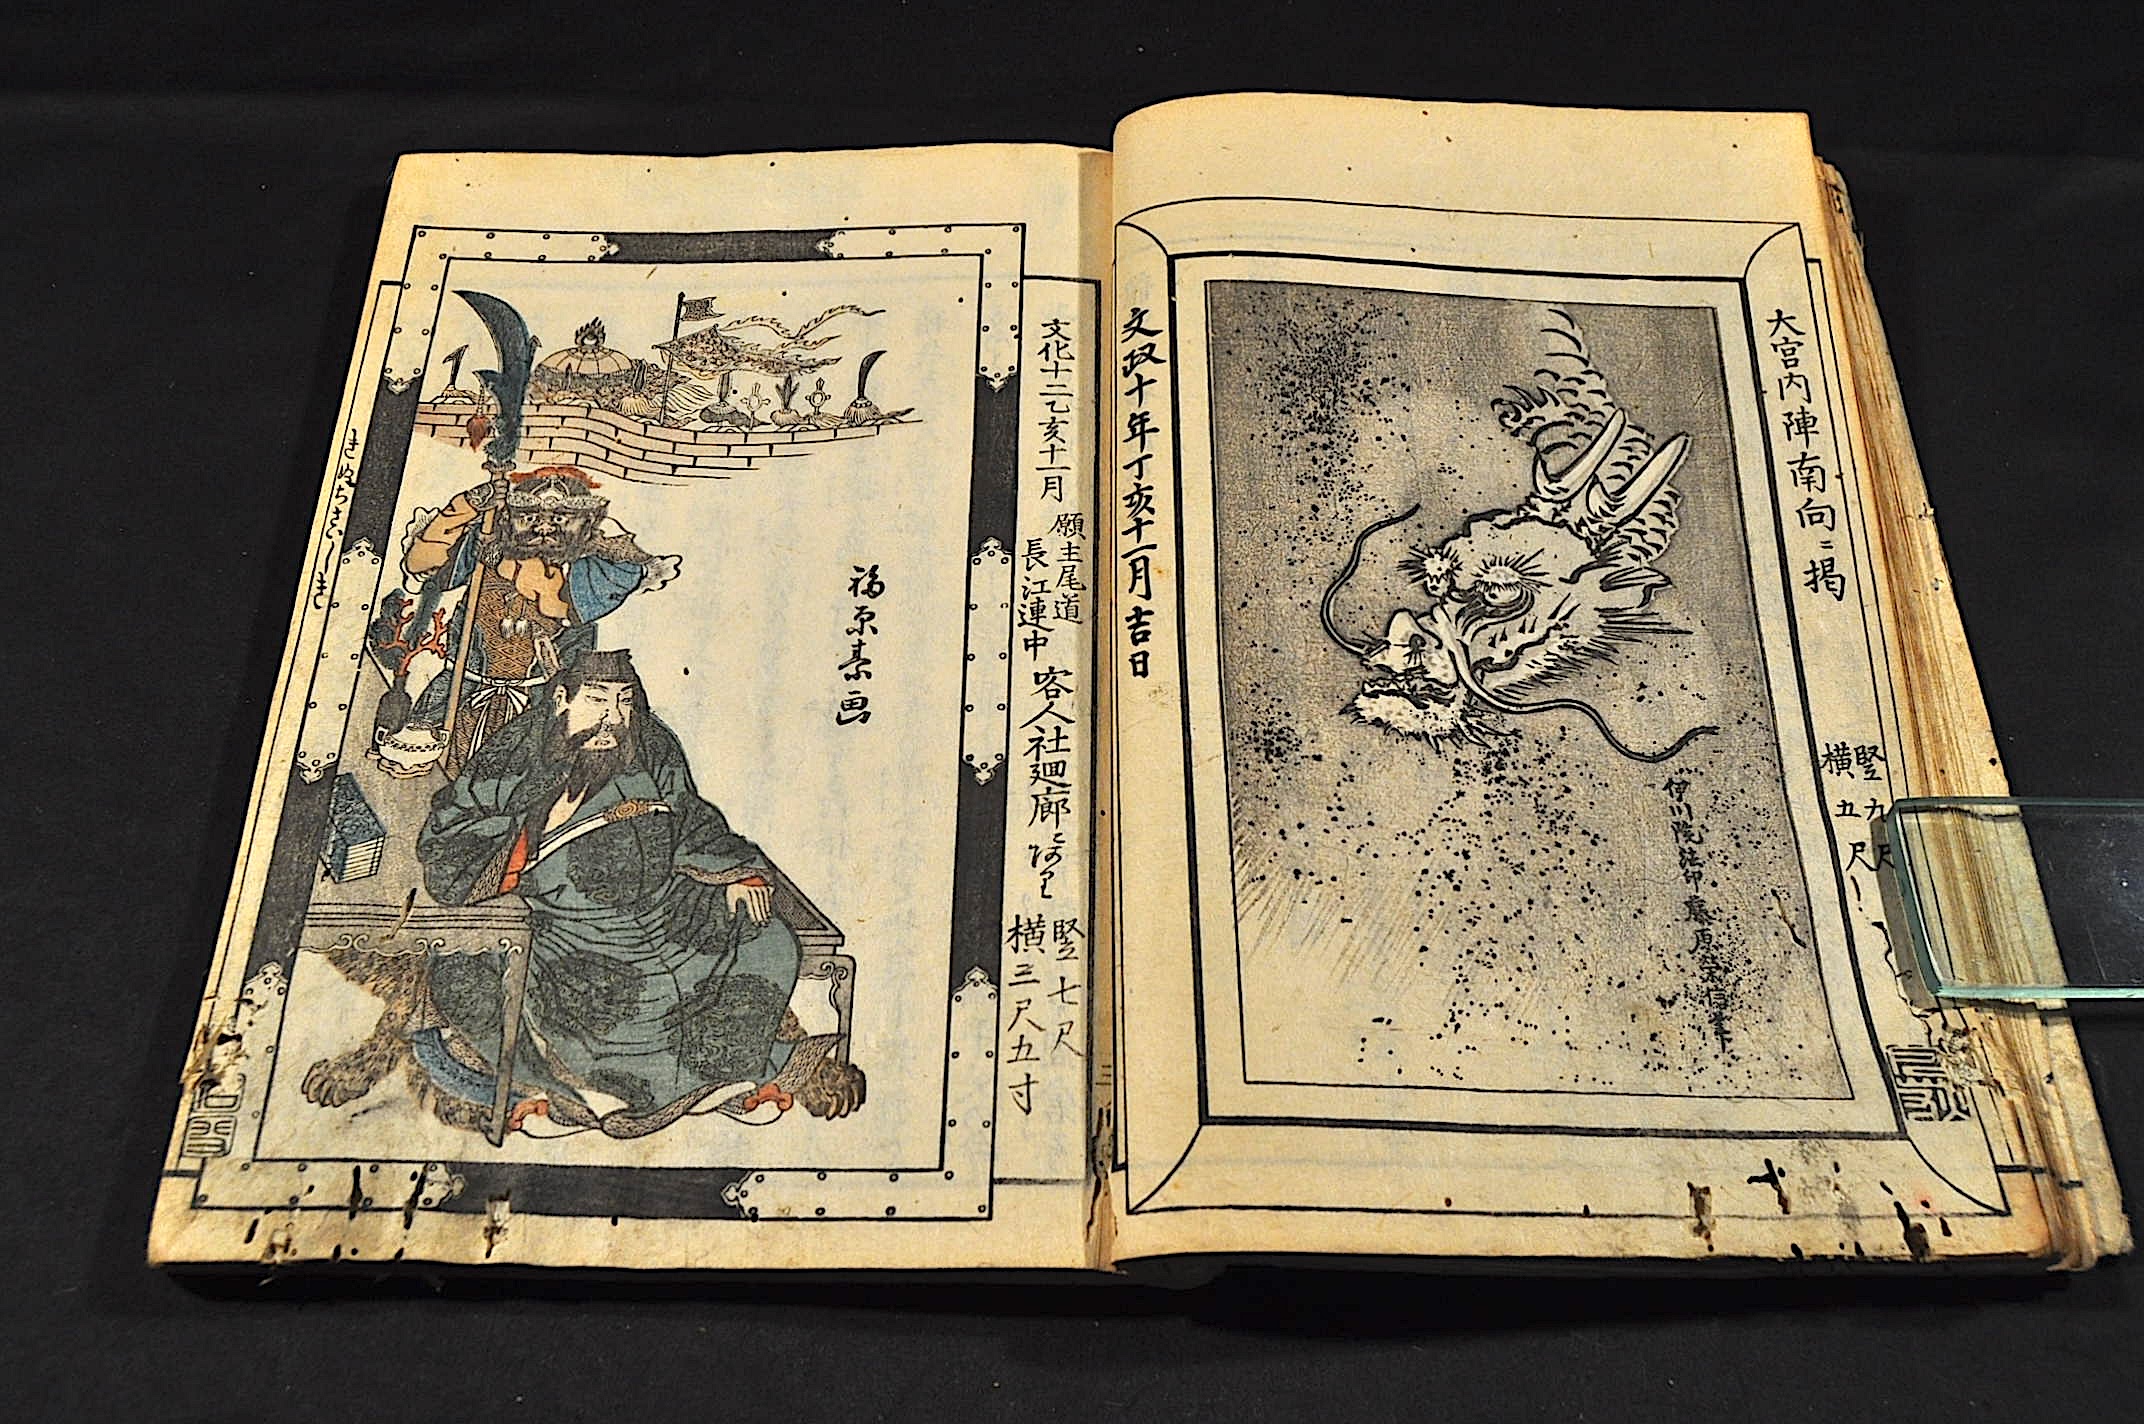 大宮内陣南向ニ掲
竪九尺
横五尺
伊川院法印藤原栄信筆
文政十年丁亥十一月吉日
文化十二乙亥十一月
願主尾道
長江連中
客人社廻廊にあり
竪七尺
横三尺五寸
福原素画